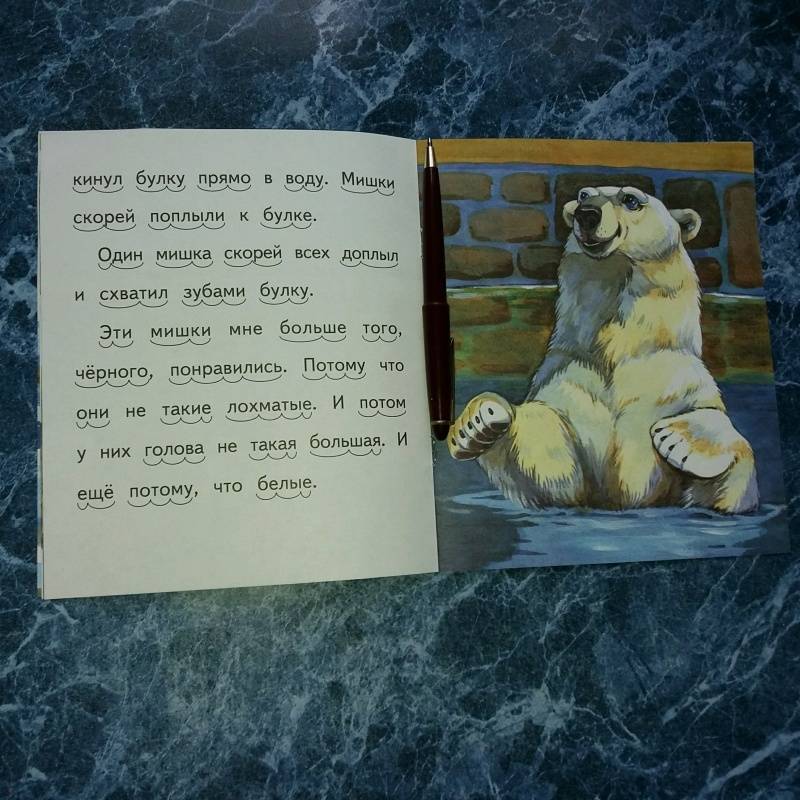 кинул булку прямо в воду. Мишки
скорей поплыли к булке.
Один мишка скорей всех доплыл
и схватил зубами булку.
Эти мишки мне больше того,
чёрного, понравились. Потому что
они не такие лохматые. И потом
у них голова не такая большая. И
ещё потому, что белые.